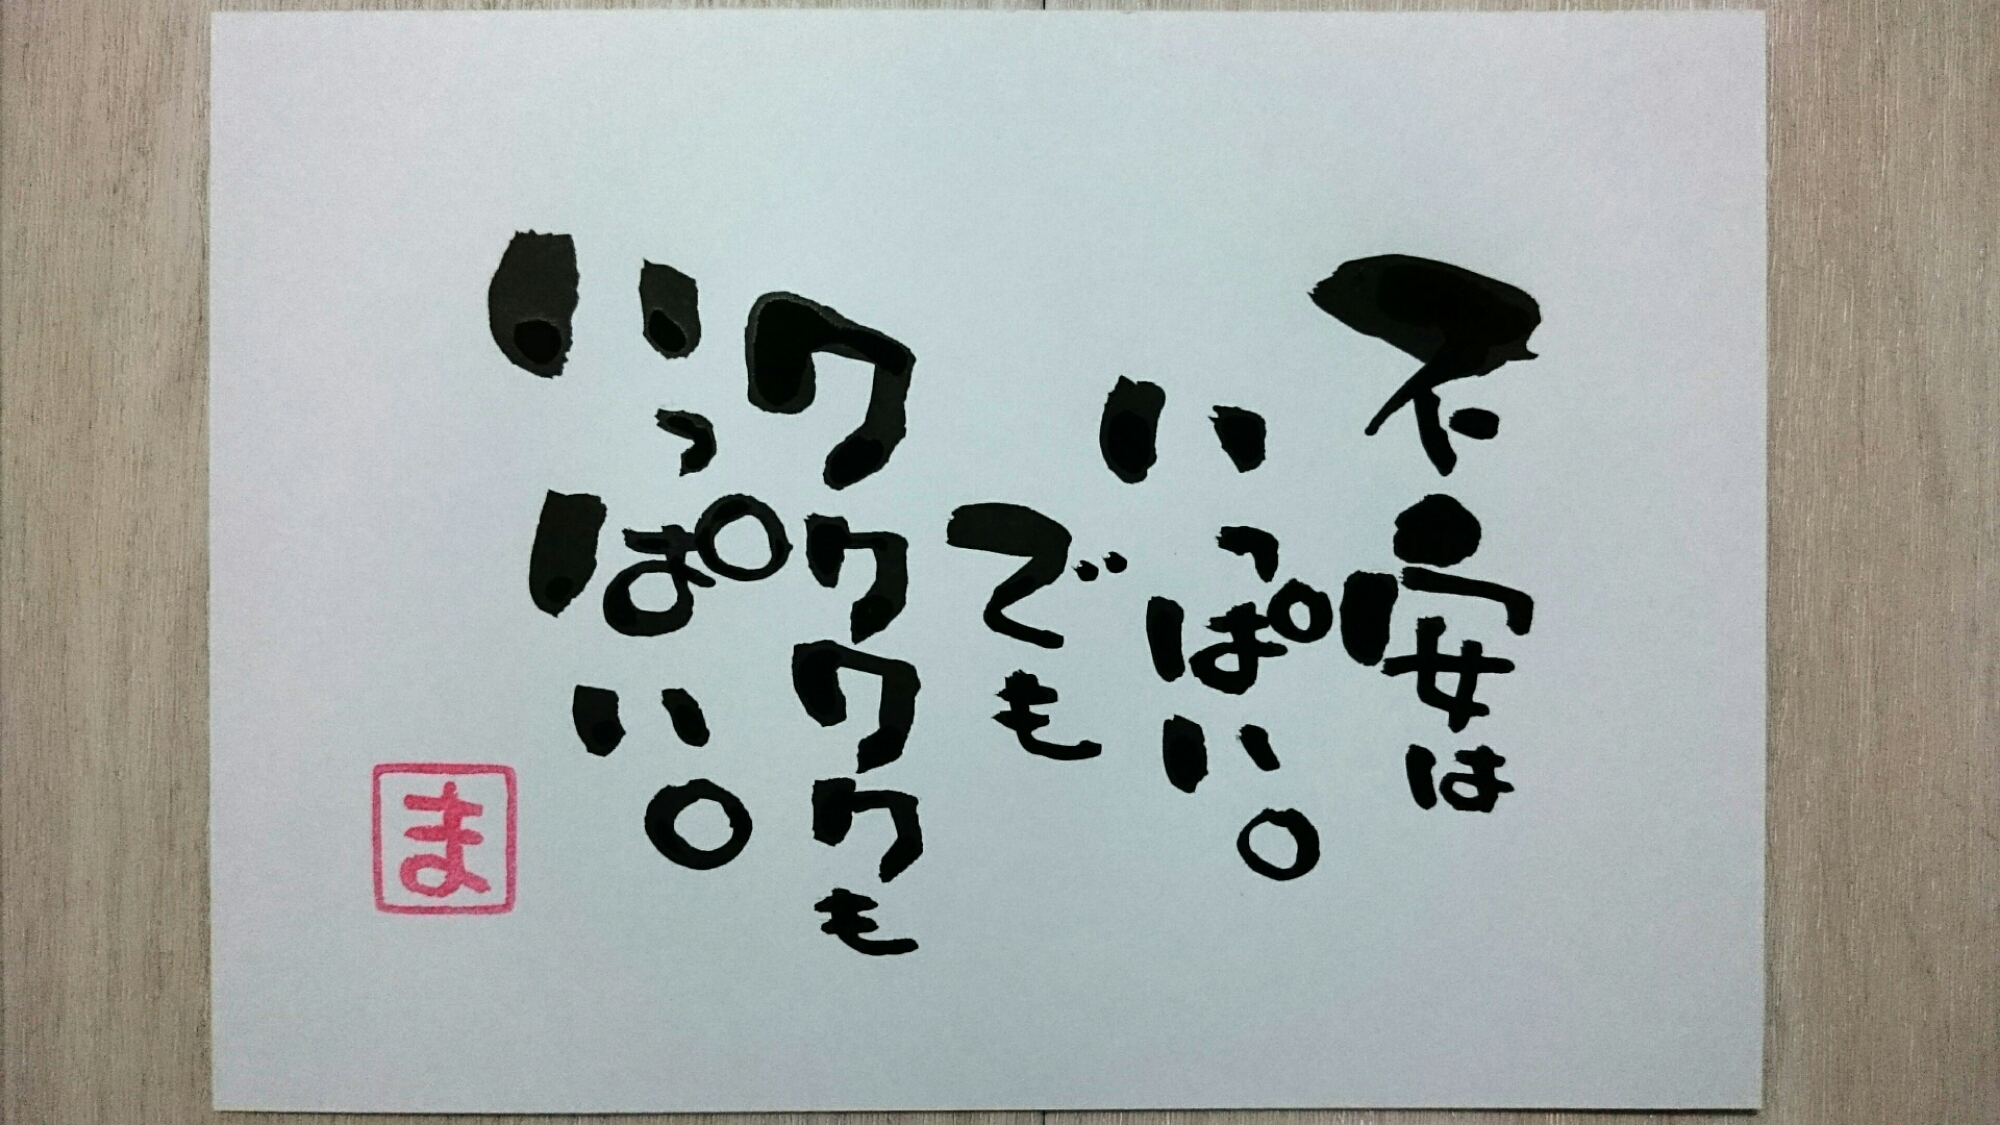 不安は
いっぱい。
でも
ワクワクも
いっぱい。
ま